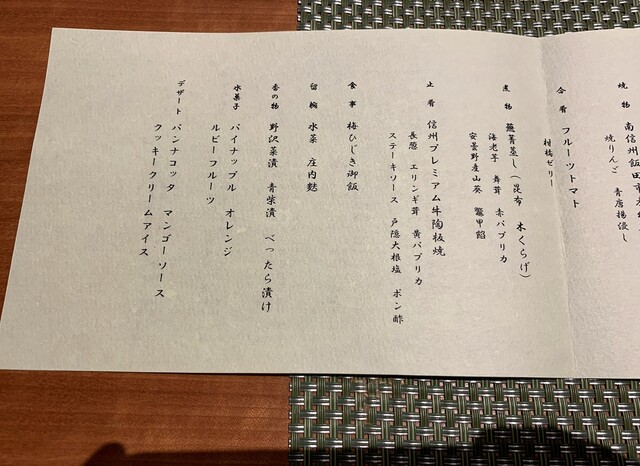 焼物 南信州飯田市
焼りんご 青唐揚浸し
合肴 フルーツトマト
柑橘ゼリー
煮物 蕪菁蒸し（昆布 木くらげ）
海老芋 舞茸 赤パプリカ
安曇野産山葵 鼈甲餡
止肴 信州プレミアム牛陶板焼
長葱 エリンギ茸 黄パプリカ
ステーキソース 戸隠大根塩 ポン酢
食事 梅ひじき御飯
留椀 水菜 庄内麩
香の物 野沢菜漬 青柴漬 べったら漬け
水菓子 パイナップル オレンジ
ルビーフルーツ
デザート パンナコッタ マンゴーソース
クッキークリームアイス